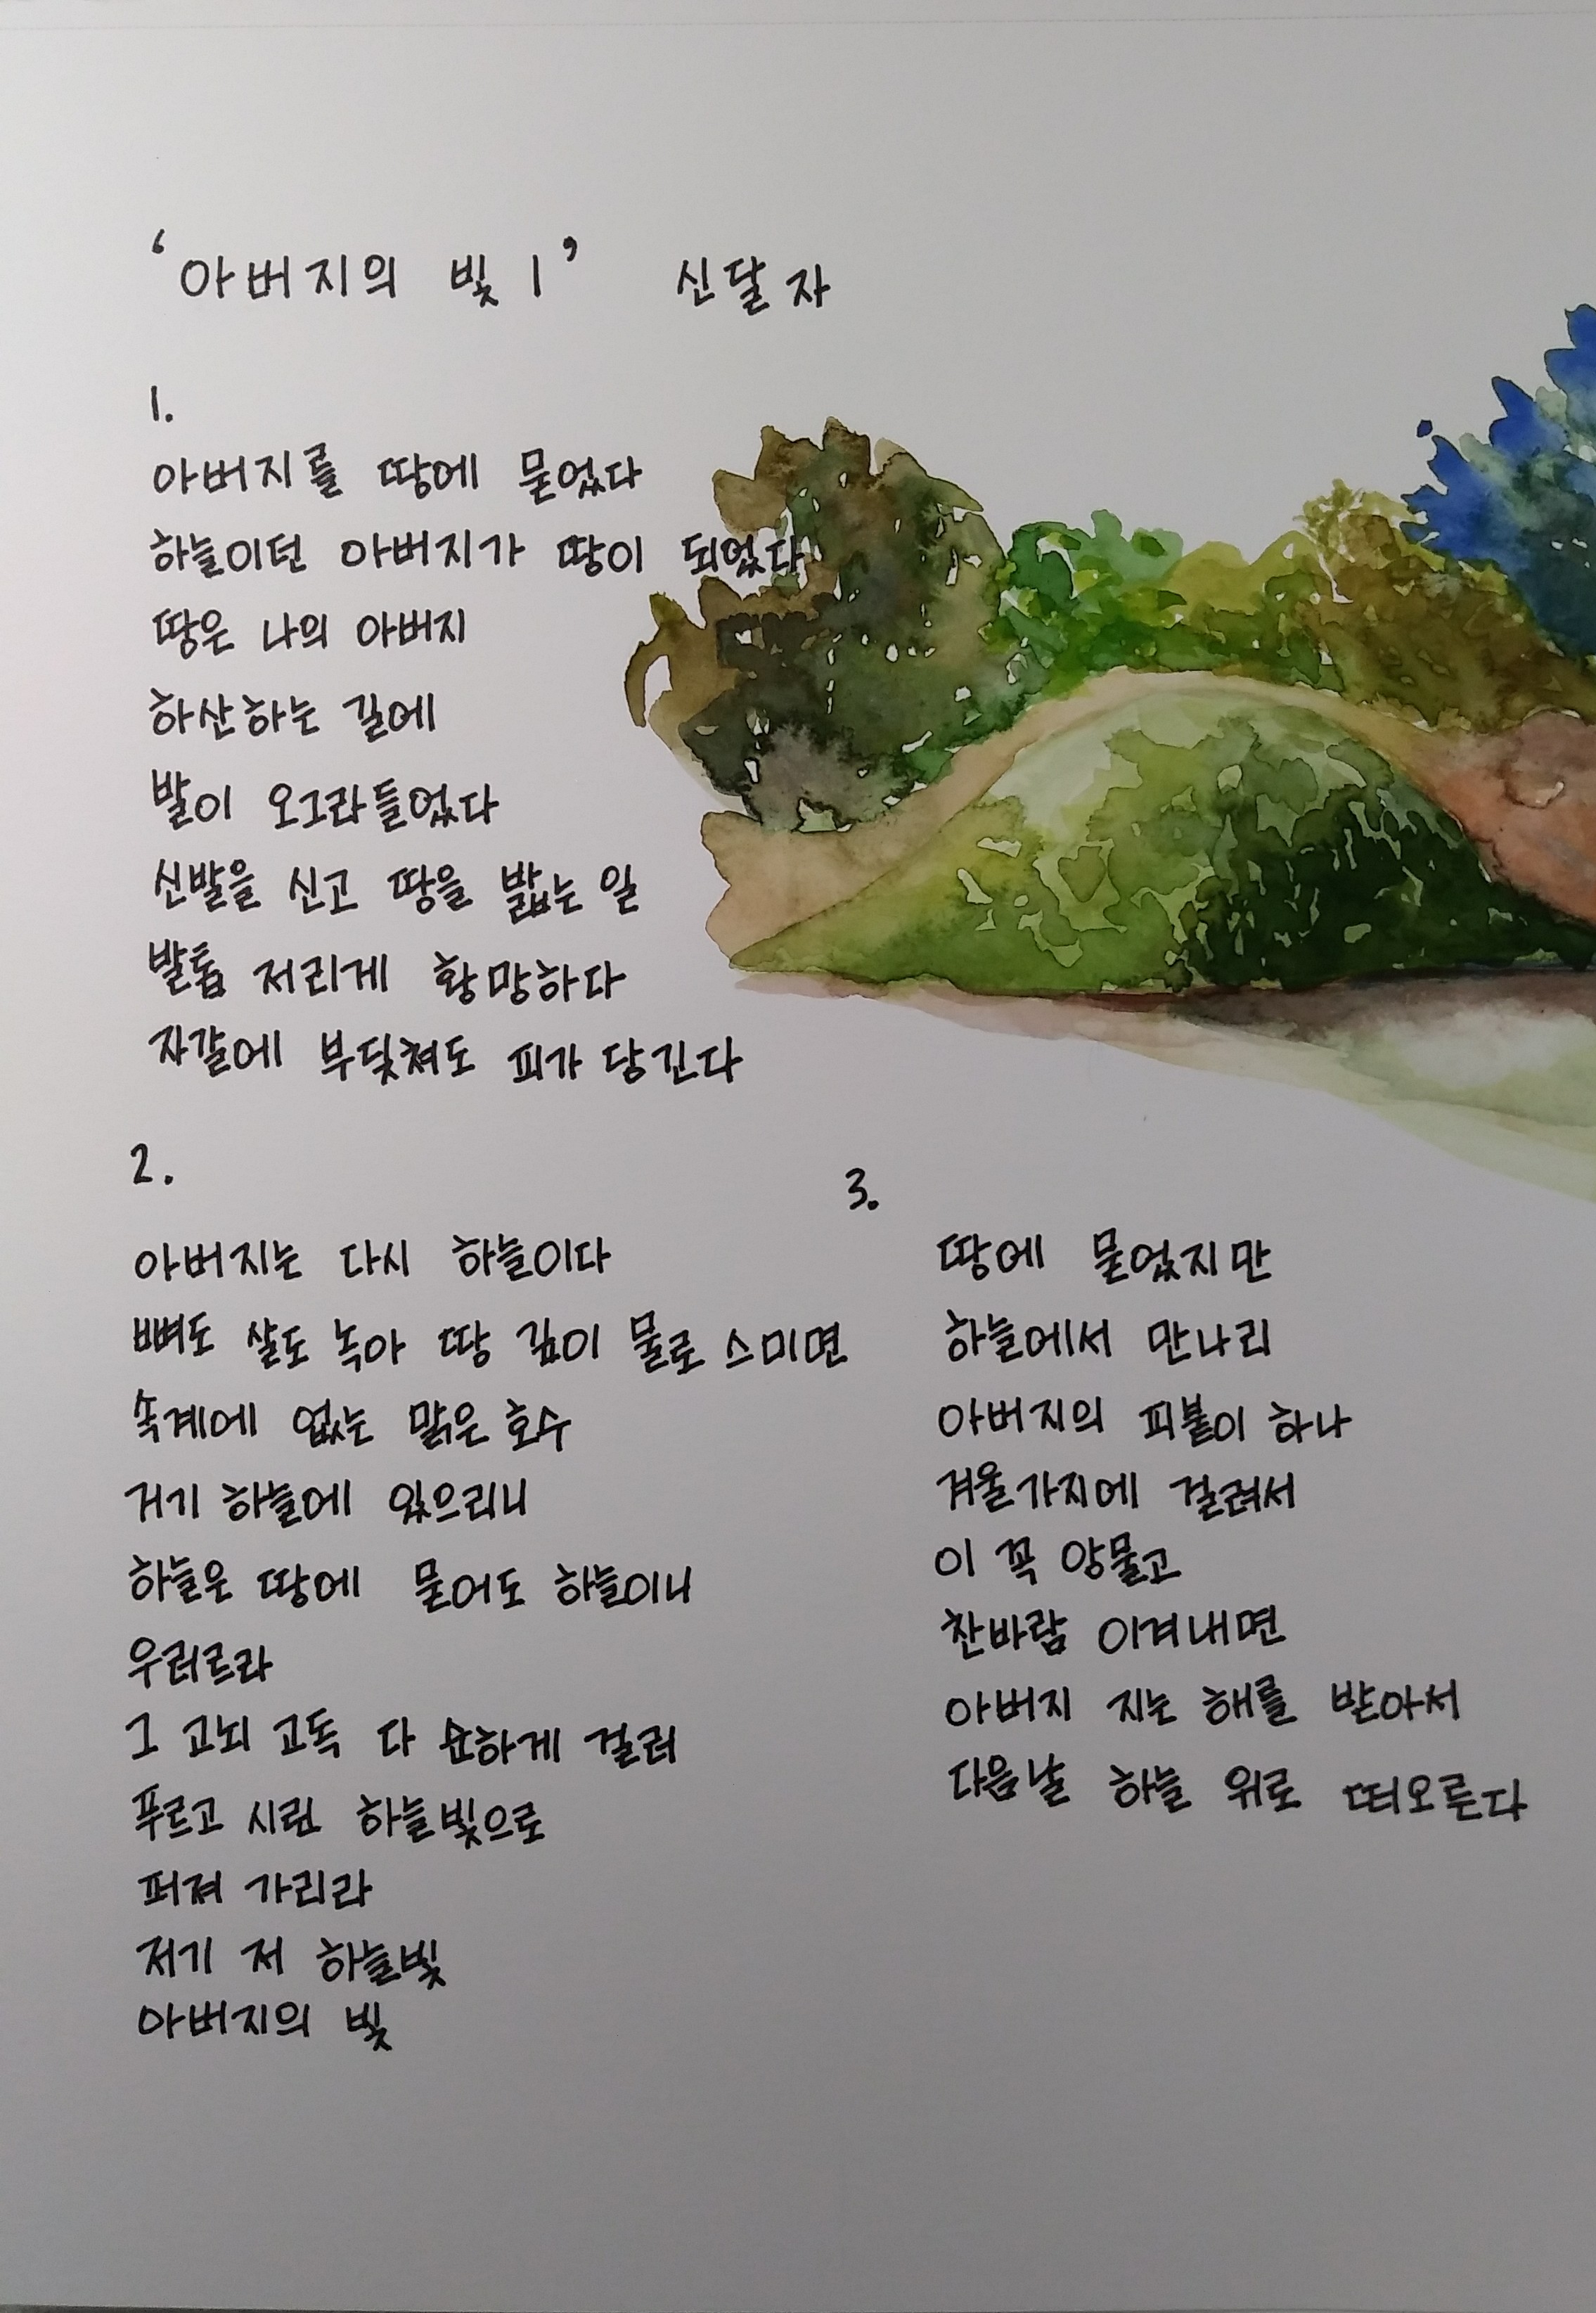 '아버지의 빛 1' 신달자
1.
아버지를 땅에 묻었다
하늘이던 아버지가 땅이 되었다
땅은 나의 아버지
하산하는 길에
발이 오그라들었다
신발을 신고 땅을 밟는 일
발톱 저리게 황망하다
자갈에 부딪쳐도 피가 당긴다
2.
아버지는 다시 하늘이다
뼈도 살도 녹아 땅 깊이 물로 스미면
속계에 없는 맑은 호수
거기 하늘에 있으리니
하늘은 땅에 묻어도 하늘이니
우러르라
그 고뇌 고독 다 순하게 걸러
푸르고 시린 하늘빛으로
퍼져 가리라
저기 저 하늘빛
아버지의 빛
3.
땅에 묻었지만
하늘에서 만나리
아버지의 피붙이 하나
겨울가지에 걸려서
이 꼭 앙물고
찬바람 이겨내면
아버지 지는 해를 받아서
다음날 하늘 위로 떠오른다